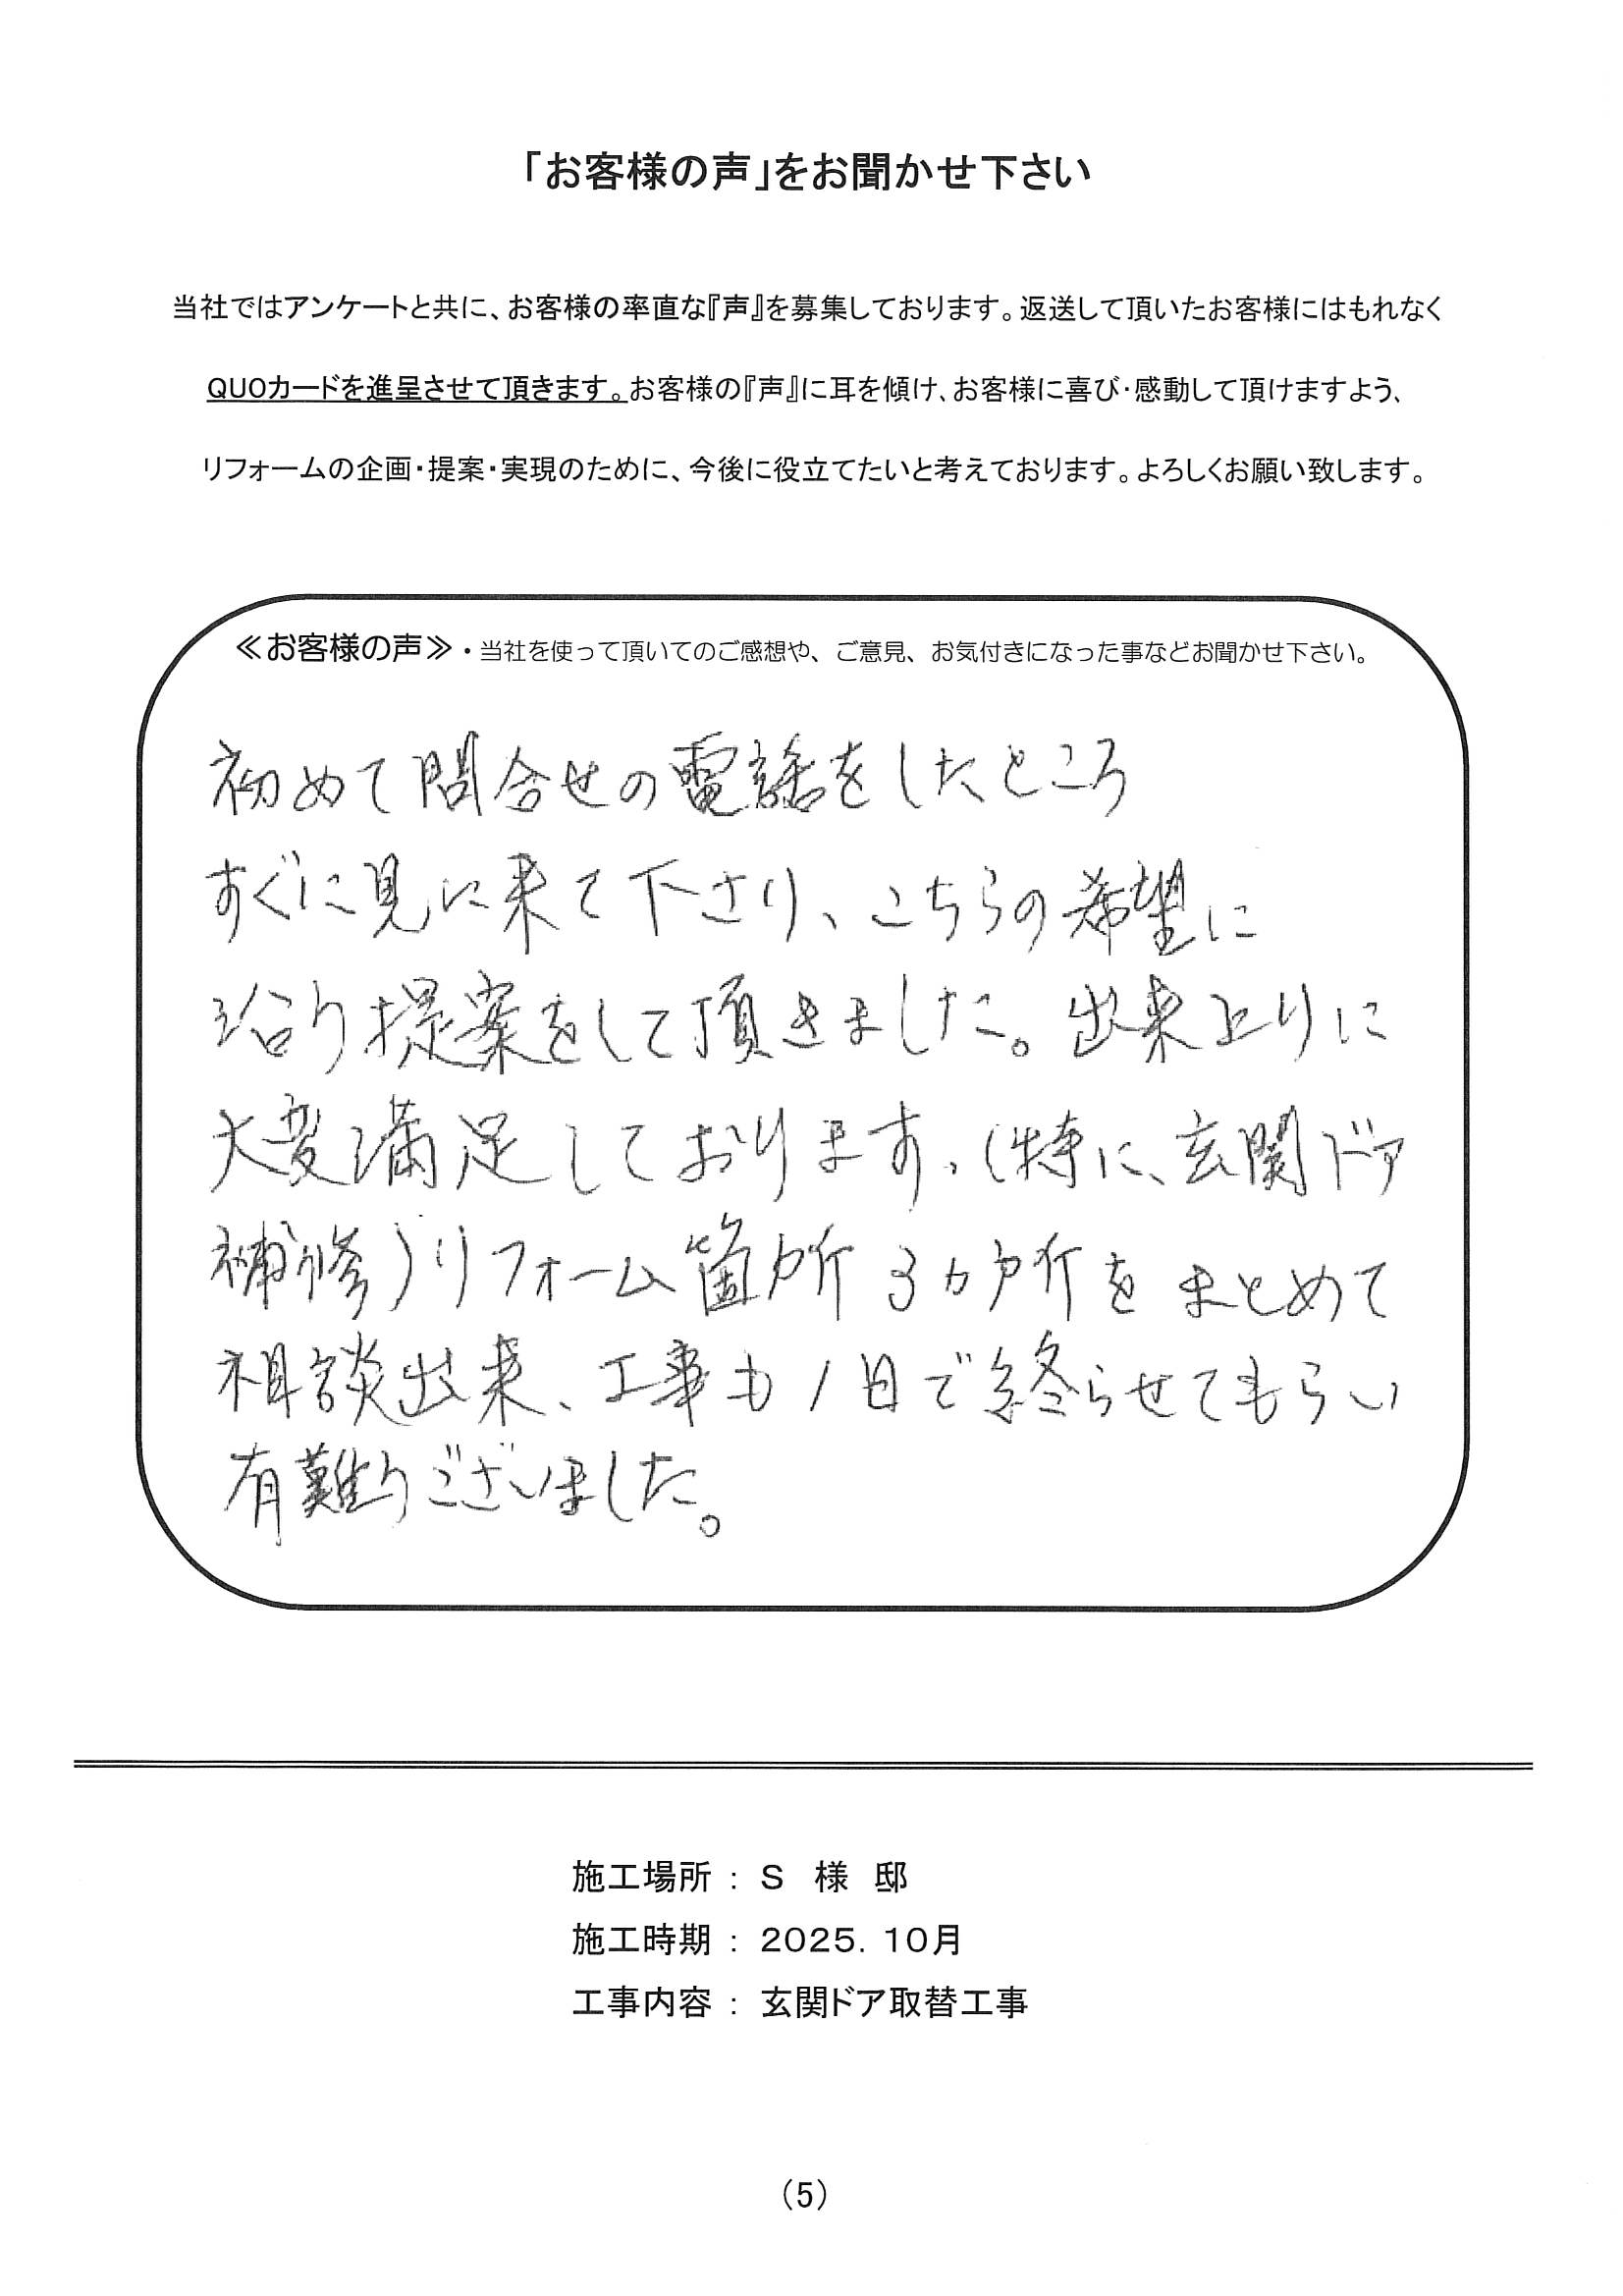 「お客様の声」をお聞かせ下さい
当社ではアンケートと共に、お客様の率直な『声』を募集しております。返送して頂いたお客様にはもれなく
QUOカードを進呈させて頂きます。お客様の『声』に耳を傾け、お客様に喜び・感動して頂けますよう、
リフォームの企画・提案・実現のために、今後に役立てたいと考えております。よろしくお願い致します。
≪お客様の声≫・当社を使って頂いてのご感想や、ご意見、お気付きになった事などお聞かせ下さい。
初めて問合せの電話をしたところ
すぐに見に来て下さり、こちらの希望に
沿う提案をして頂きました。出来上りに
大変満足しております。(特に、玄関ドア
補修)リフォーム箇所3ヵ所をまとめて
相談出来、工事も1日で終らせてもらい
有難うございました。
施工場所 : S 様 邸
施工時期 : 2025.10月
工事内容 : 玄関ドア取替工事
(5)